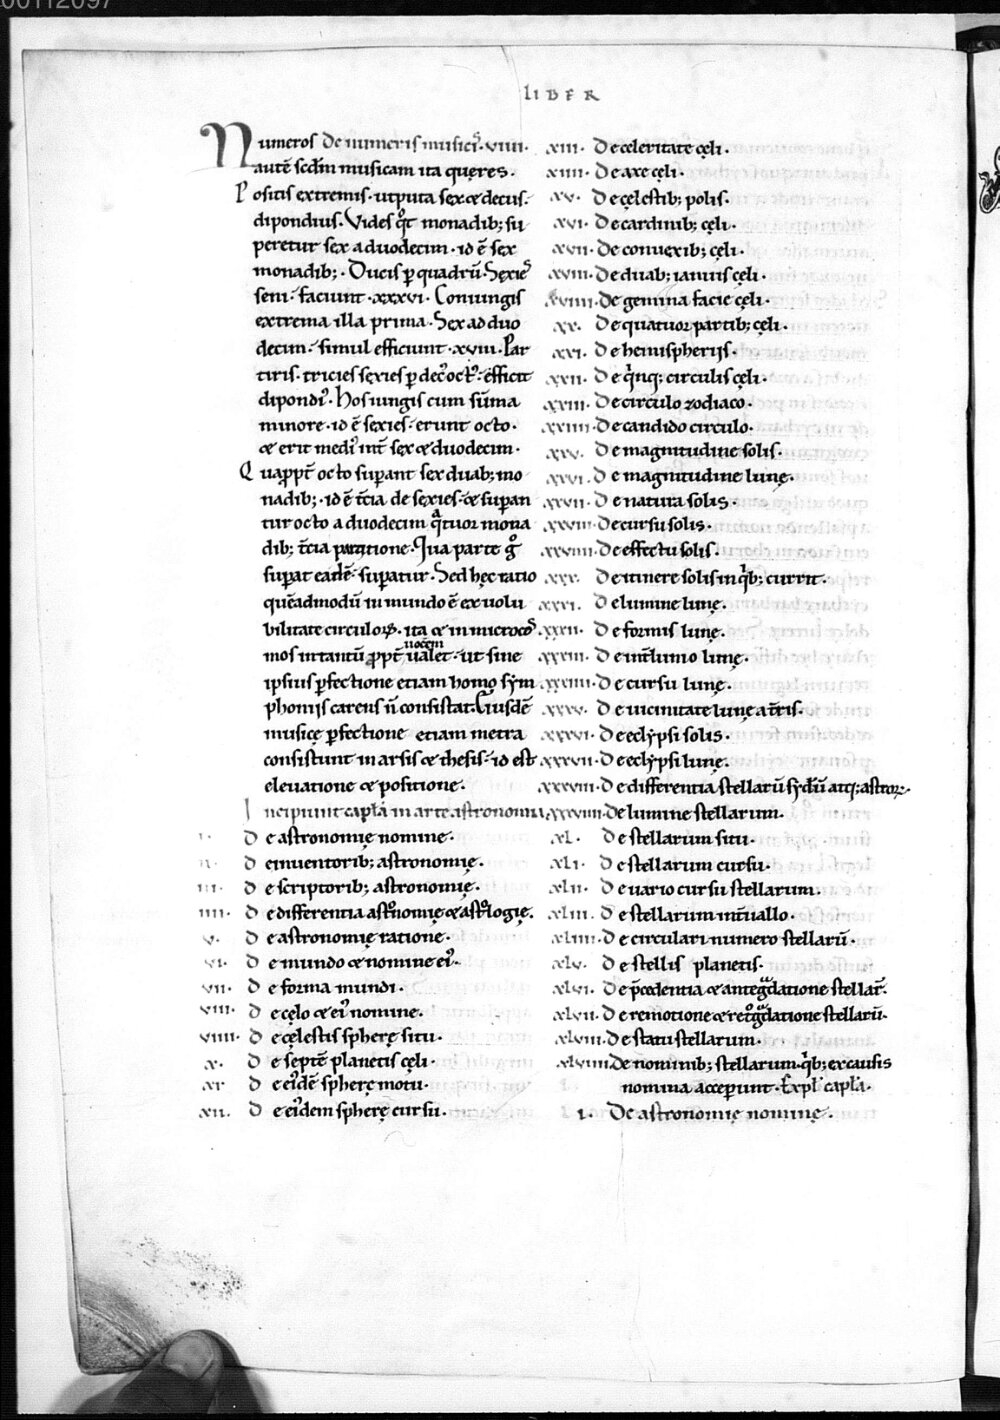 00112097
LIBER
Numeros De numeris musicis. VIIII.
autē scdm musicam ita quęres.
Positis extremis. utputa sex & decus.
dipondius. Vides qͦt monadib; su
peretur sex a duodecim. id ē sex
monadib;. Ducis p quadrū. Sexieˢ
seni. faciunt. xxxvi. Coniungis
extrema illa prima. Sex ad duo
decim. simul efficiunt. xviii. Par
tiris. tricies sexies p dec̄ octͦ. efficit
dipondiˀ. Hos iungis cum sūma
minore. id ē sexies. erunt octo.
& erit mediˀ int̄ sex & duodecim.
Quappt̄ octo supant sex duab; mo
nadib;. id ē t̄cia de sexies. & supan
tur octo a duodecim qͣtuor mona
dib; t̄cia portione. Qua parte gͦ
supat eadē. supatur. Sed hęc ratio
quēadmodū in mundo ē ex uolu
bilitate circuloꝝ. ita & in microco
mos intantū ppt̄ uocem ualet. ut sine
ipsius pfectione etiam homo sym
phoniis carens n̄ consistat. Eiusdē
musicę pfectione etiam metra
consistunt in arsis & thesis. id est
eleuatione & positione.
Incipiunt capl̄a in arte astronomię
I. De astronomię nomine.
II. De inuentorib; astronomię.
III. De scriptorib; astronomię.
IIII. De differentia astͦnomię & astͦlogię.
V. De astronomię ratione.
VI. De mundo & nomine eiˀ.
VII. De forma mundi.
VIII. De cęlo & eiˀ nomine.
VIIII. De cęlestis sphere situ.
X. De septē planetis cęli.
XI. De eiˀdē spherę motu.
XII. De eiˀdem spherę cursu.
XIII. De celeritate cęli.
XIIII. De axe cęli.
XV. De cęlestib; polis.
XVI. De cardinib; cęli.
XVII. De conuexib; cęli.
XVIII. De duab; ianuis cęli.
XVIIII. De gemina facie cęli.
XX. De quatuor partib; cęli.
XXI. De hemispheriis.
XXII. De qͥnq; circulis cęli.
XXIII. De circulo zodiaco.
XXIIII. De candido circulo.
XXV. De magnitudine solis.
XXVI. De magnitudine lunę.
XXVII. De natura solis.
XXVIII. De cursu solis.
XXVIIII. De effectu solis.
XXX. De itinere solis in qͥb; currit.
XXXI. De lumine lunę.
XXXII. De formis lunę.
XXXIII. De int̄lunio lunę.
XXXIIII. De cursu lunę.
XXXV. De uicinitate lunę a t̄ris.
XXXVI. De eclypsi solis.
XXXVII. De eclypsi lunę.
XXXVIII. De differentia stellarū sydūm atq; astroꝝ.
XXXVIIII. De lumine stellarum.
XL. De stellarum situ.
XLI. De stellarum cursu.
XLII. De uario cursu stellarum.
XLIII. De stellarum int̄uallo.
XLIIII. De circulari numero stellarū.
XLV. De stellis planetis.
XLVI. De p̄cedentia & antegͣdatione stellar̄.
XLVII. De remotione & retͦgͣdatione stellarū.
XLVII. De statu stellarum.
XLVIII. De nominib; stellarum. qͥb; ex causis
nomina acceperunt. Expl̄ capl̄a.
I. De astronomię nomine.